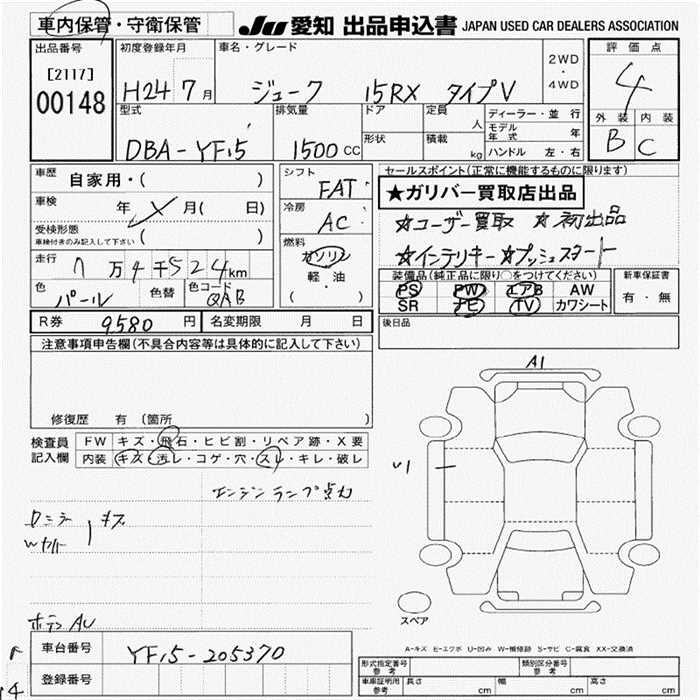 車内保管・守衛保管 JU 愛知 出品申込書 JAPAN USED CAR DEALERS ASSOCIATION
出品番号 初度登録年月 車名・グレード 2WD・4WD 評価点
[2117]
00148 H24 7月 ジューク 15RX タイプV 4
型式 排気量 ドア 定員 人 ディーラー・並行 外装 内装
DBA-YF15 1500CC 形状 積載 kg モデル年式 年 B C
ハンドル 左・右
車歴 自家用・( ) シフト FAT セールスポイント(正常に機能するものに限ります)
車検 年 月( 日) 冷房 AC ★ガリバー買取店出品
受検形態 車検付きのみ記入して下さい ( ) ☆ユーザー買取 ☆初出品
燃料 ガソリン ☆インテリキー ☆プッシュスタート
走行 7万4千524km 軽・油 ( )
装備品(純正品に限り○をつけてください) 新車保証書
色 パール 色替 色コード QAB PS PW エアB AW 有・無
SR ナビ TV カワシート
R券 9580円 名変期限 月 日 後日品
注意事項申告欄(不具合内容等は具体的に記入して下さい)
A1
修復歴 有 (箇所 )
検査員 FW キズ・飛石・ヒビ割・リペア跡・X要
記入欄 内装 キズ・汚レ・コゲ・穴・スレ・キレ・破レ
U1
エンジンランプ点灯
キズ
スペア
A-キズ E-エクボ U-凹み W-補修跡 S-サビ C-腐食 XX-交換済
車台番号 YF15-205370
型式指定番号 参考 類別区分番号 参考
登録番号 車庫証明用 参考 長さ cm 幅 cm 高さ cm